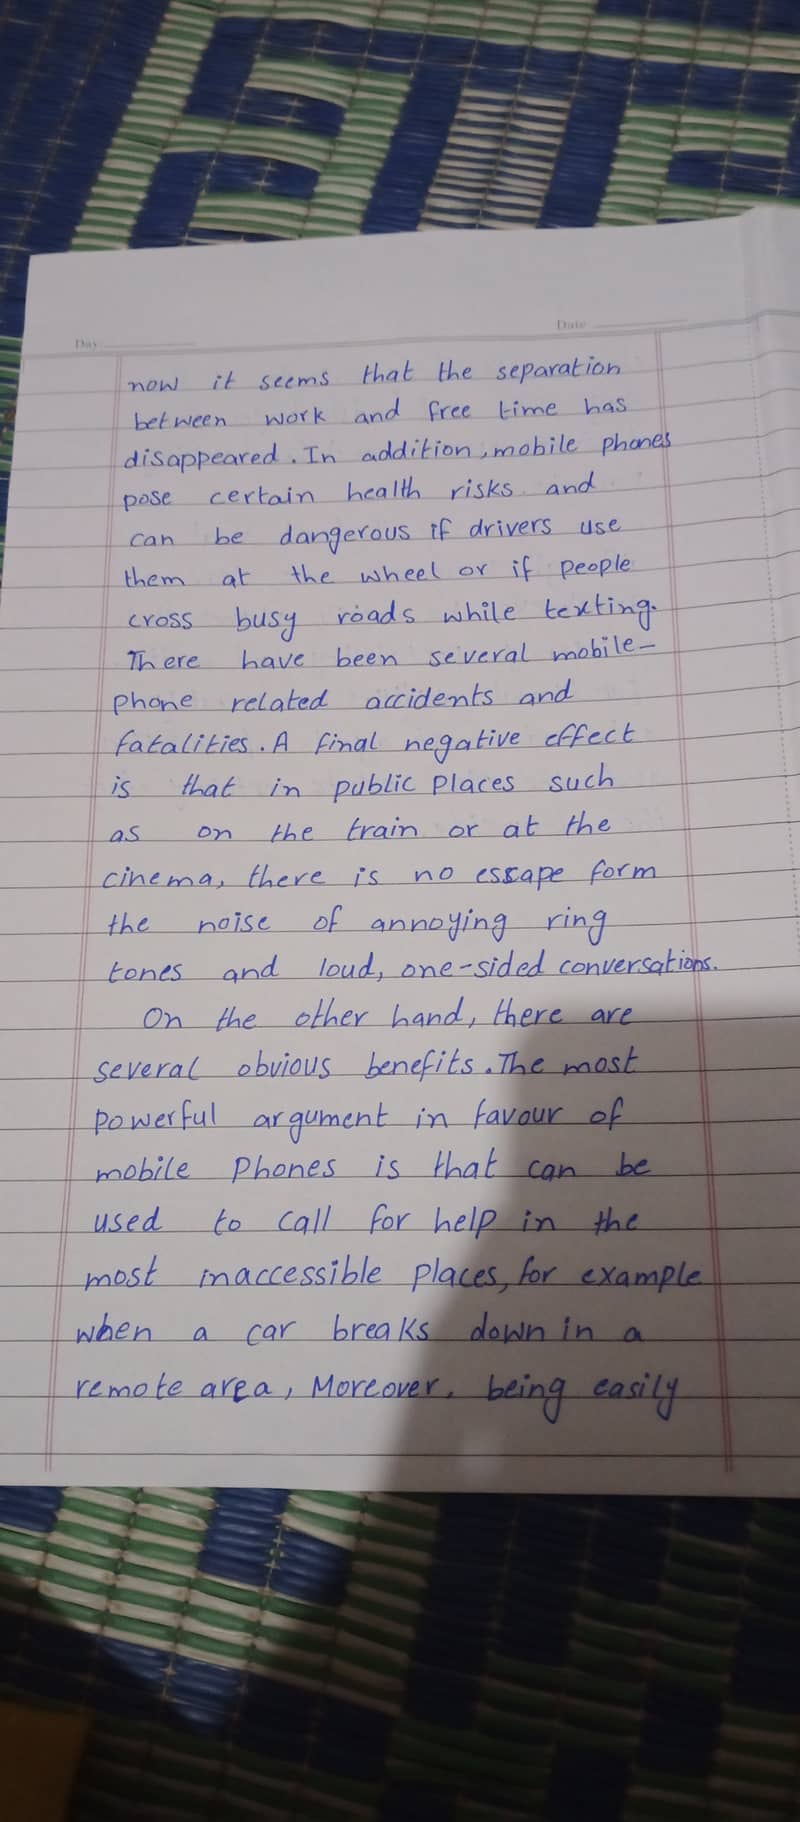 Day
Date
now it seems that the separation
between work and free time has
disappeared. In addition, mobile phones
pose certain health risks and
can be dangerous if drivers use
them at the wheel or if people
cross busy roads while texting.
There have been several mobile-
phone related accidents and
fatalities. A final negative effect
is that in public places such
as on the train or at the
cinema, there is no escape form
the noise of annoying ring
tones and loud, one-sided conversations.
On the other hand, there are
several obvious benefits. The most
powerful argument in favour of
mobile phones is that can be
used to call for help in the
most inaccessible places, for example
when a car breaks down in a
remote area, Moreover, being easily